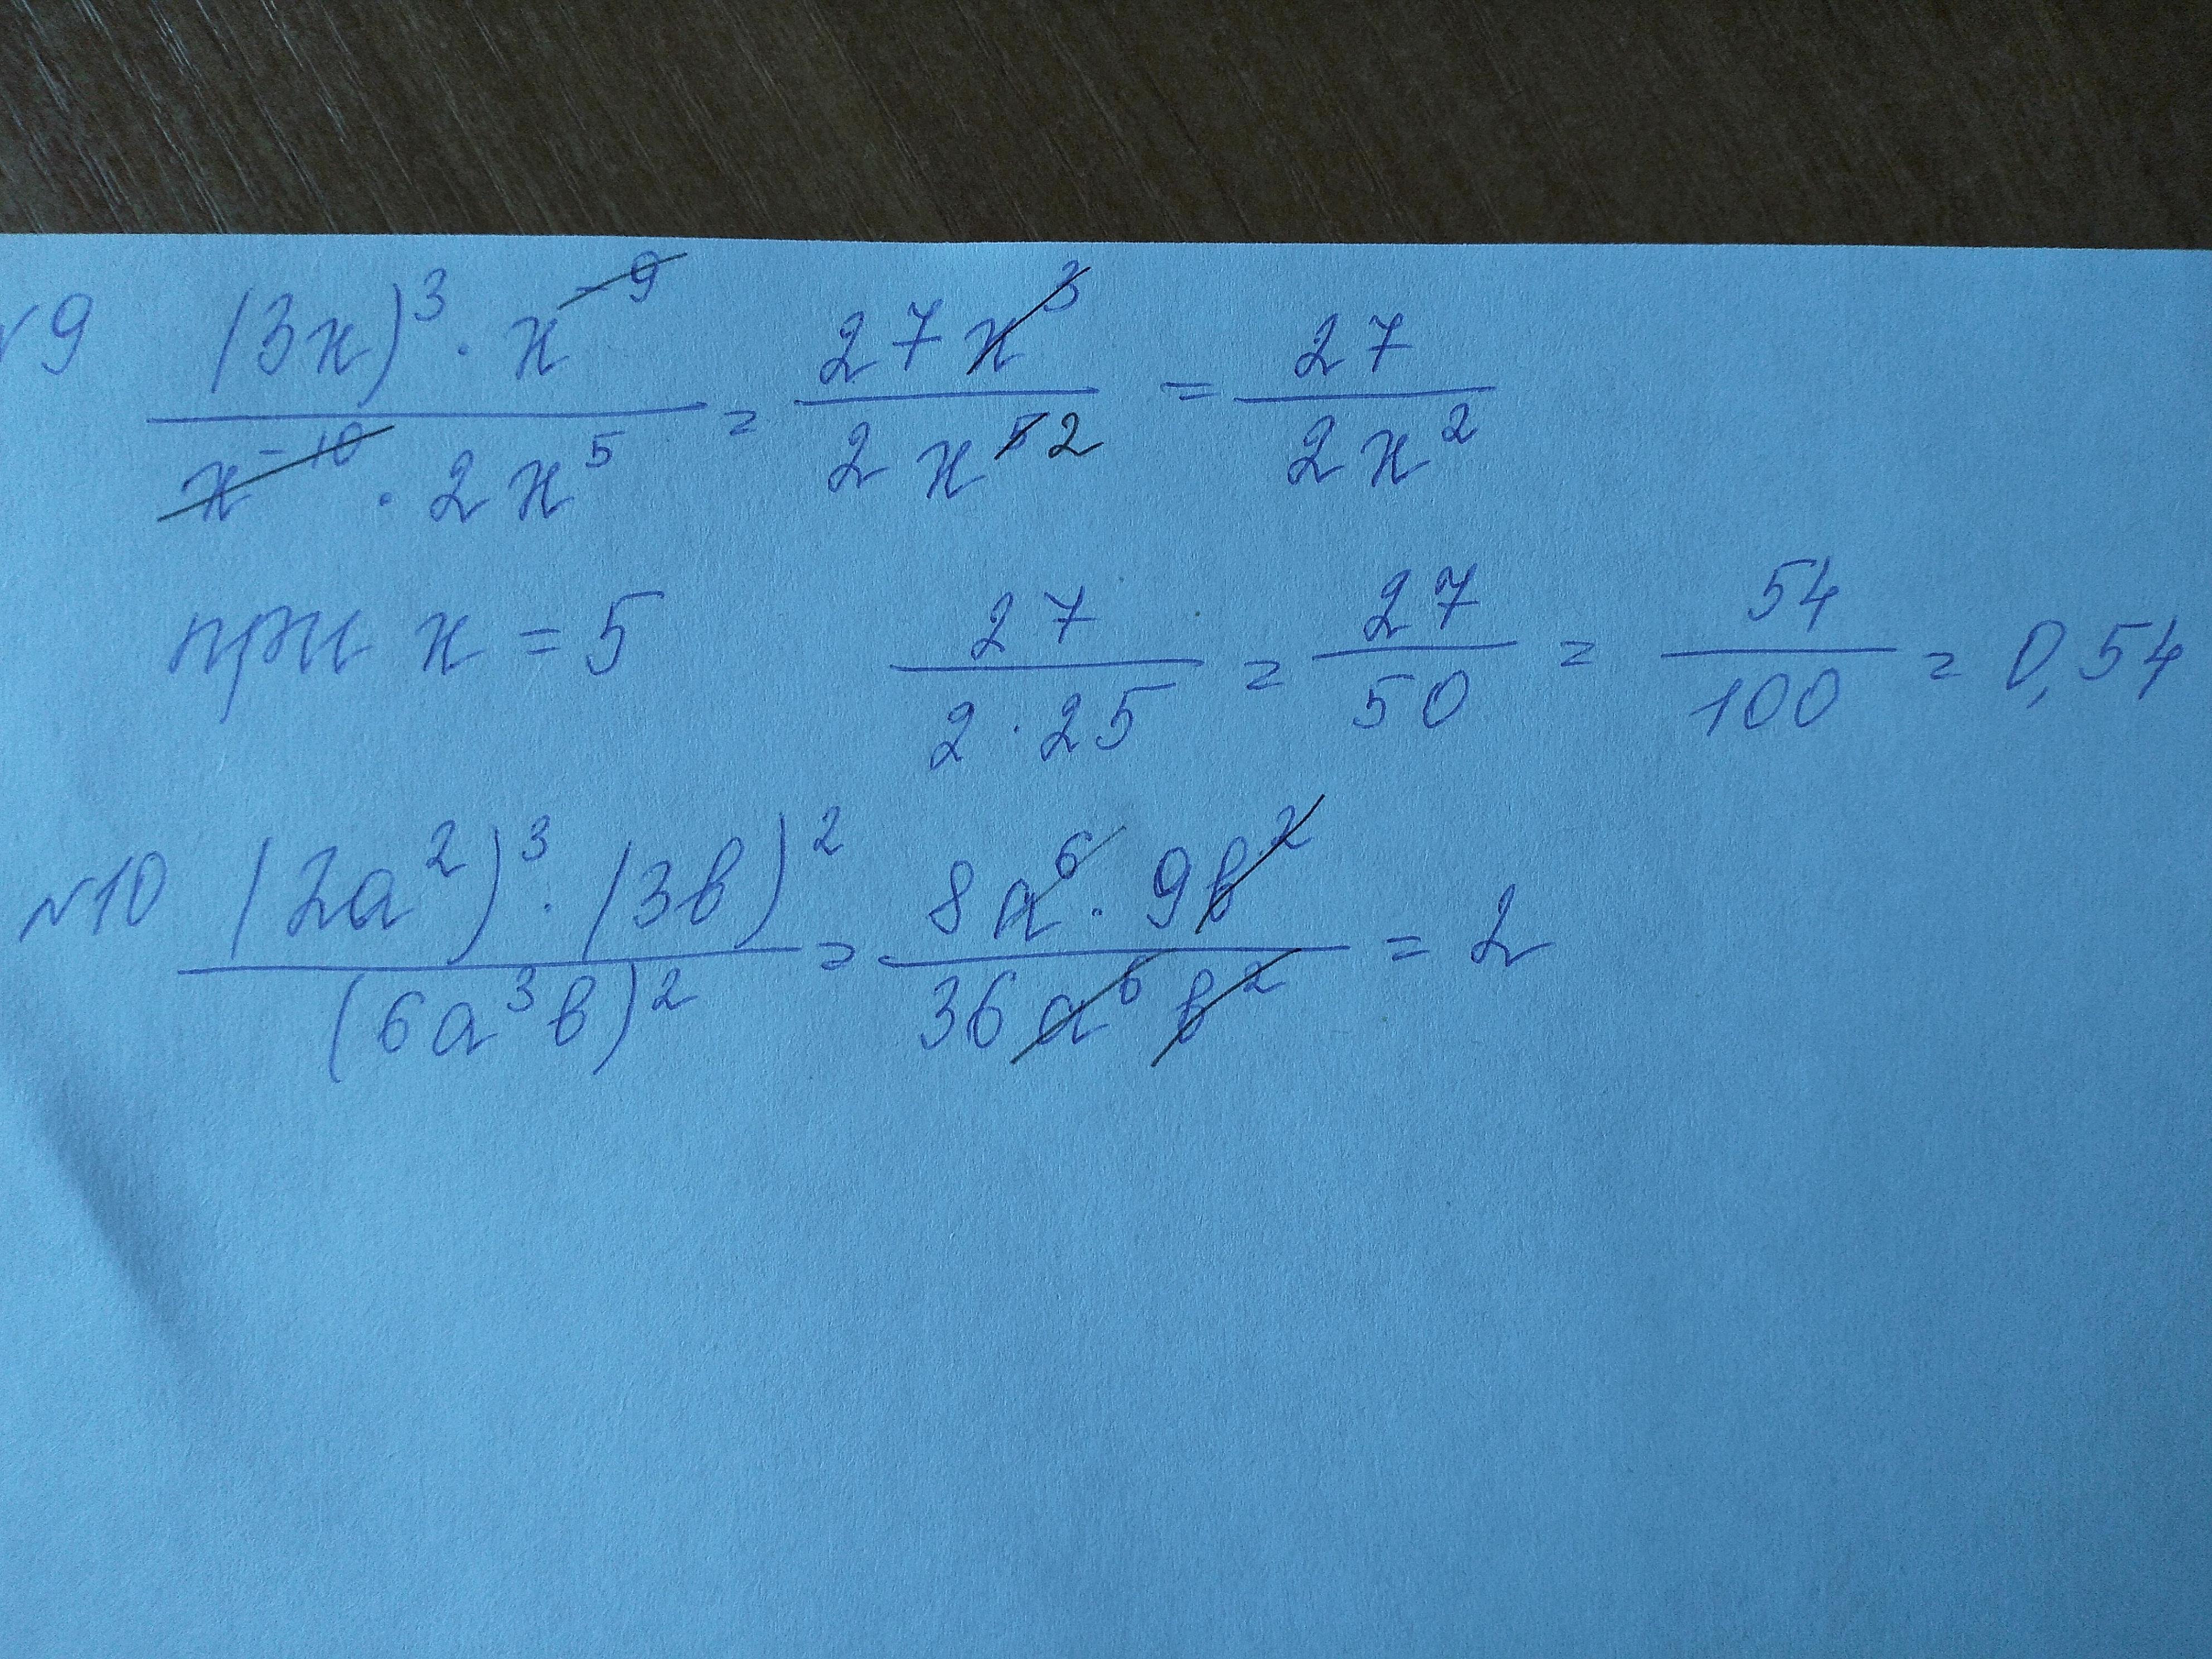 №9 (3x)³ · x⁻⁹ / x⁻¹⁰ · 2x⁵ = 27x³ / 2x⁵ 2 = 27 / 2x²
при x = 5 27 / 2 · 25 = 27 / 50 = 54 / 100 = 0,54
№10 (2a²)³ · (3b)² / (6a³b)² = 8a⁶ · 9b² / 36a⁶b² = 2